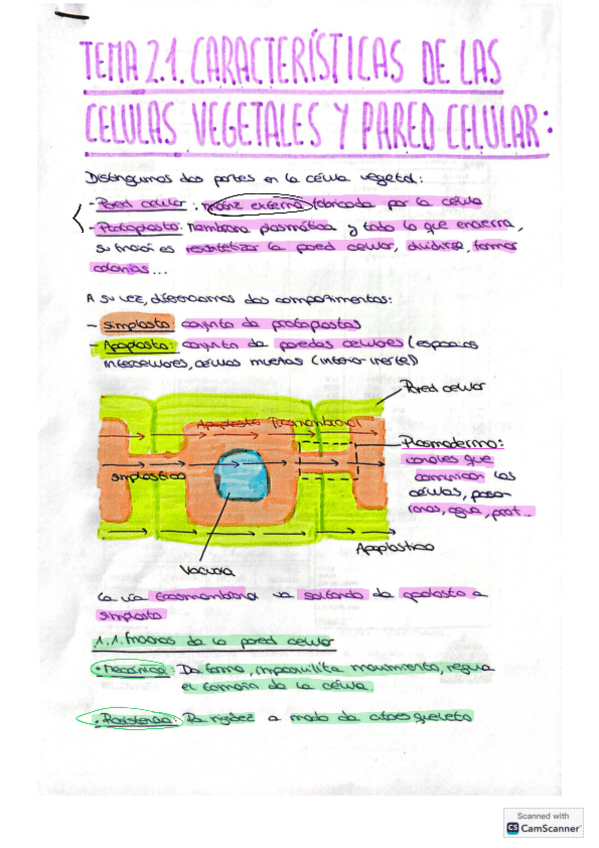 TEMA 2.1. CARACTERÍSTICAS DE LAS
CELULAS VEGETALES Y PARED CELULAR:
Distinguimos dos partes en la célula vegetal:
- Pared celular: matriz externa fabricada por la célula
- Protoplasto: Membrana plasmática y todo lo que encierra,
su función es resintetizar la pared celular, dividirse, formar
colonias...
A su vez, diferenciamos dos compartimentos:
- Simplasto: conjunto de protoplastos
- Apoplasto: conjunto de paredes celulares (espacios
intercelulares, células muertas (interior inerte))
Pared celular
Apoplasto Trasmembranal
Simplastico
Plasmodermo:
canales que
comunican las
células, pasan
iones, agua, prot...
Apoplastico
Vacuola
La vía trasmembrana va saltando de apoplasto a
simplasto
1.1. Funciones de la pared celular
• Mecánica: Da forma, imposibilita movimiento, regula
el tamaño de la célula.
• Resistencia: Da rigidez a modo de citoesqueleto
Scanned with
CS CamScanner